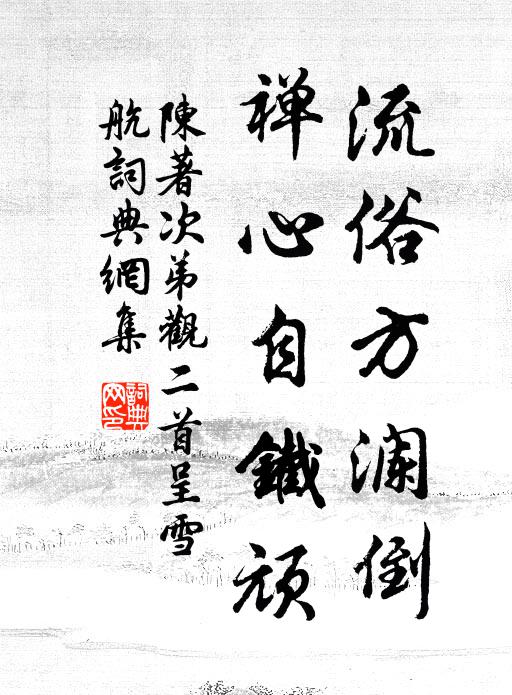 流俗方澜倒
禅心自鐵頑
陳著次弟觀二首呈雪
航詞典網集
詞典
网印